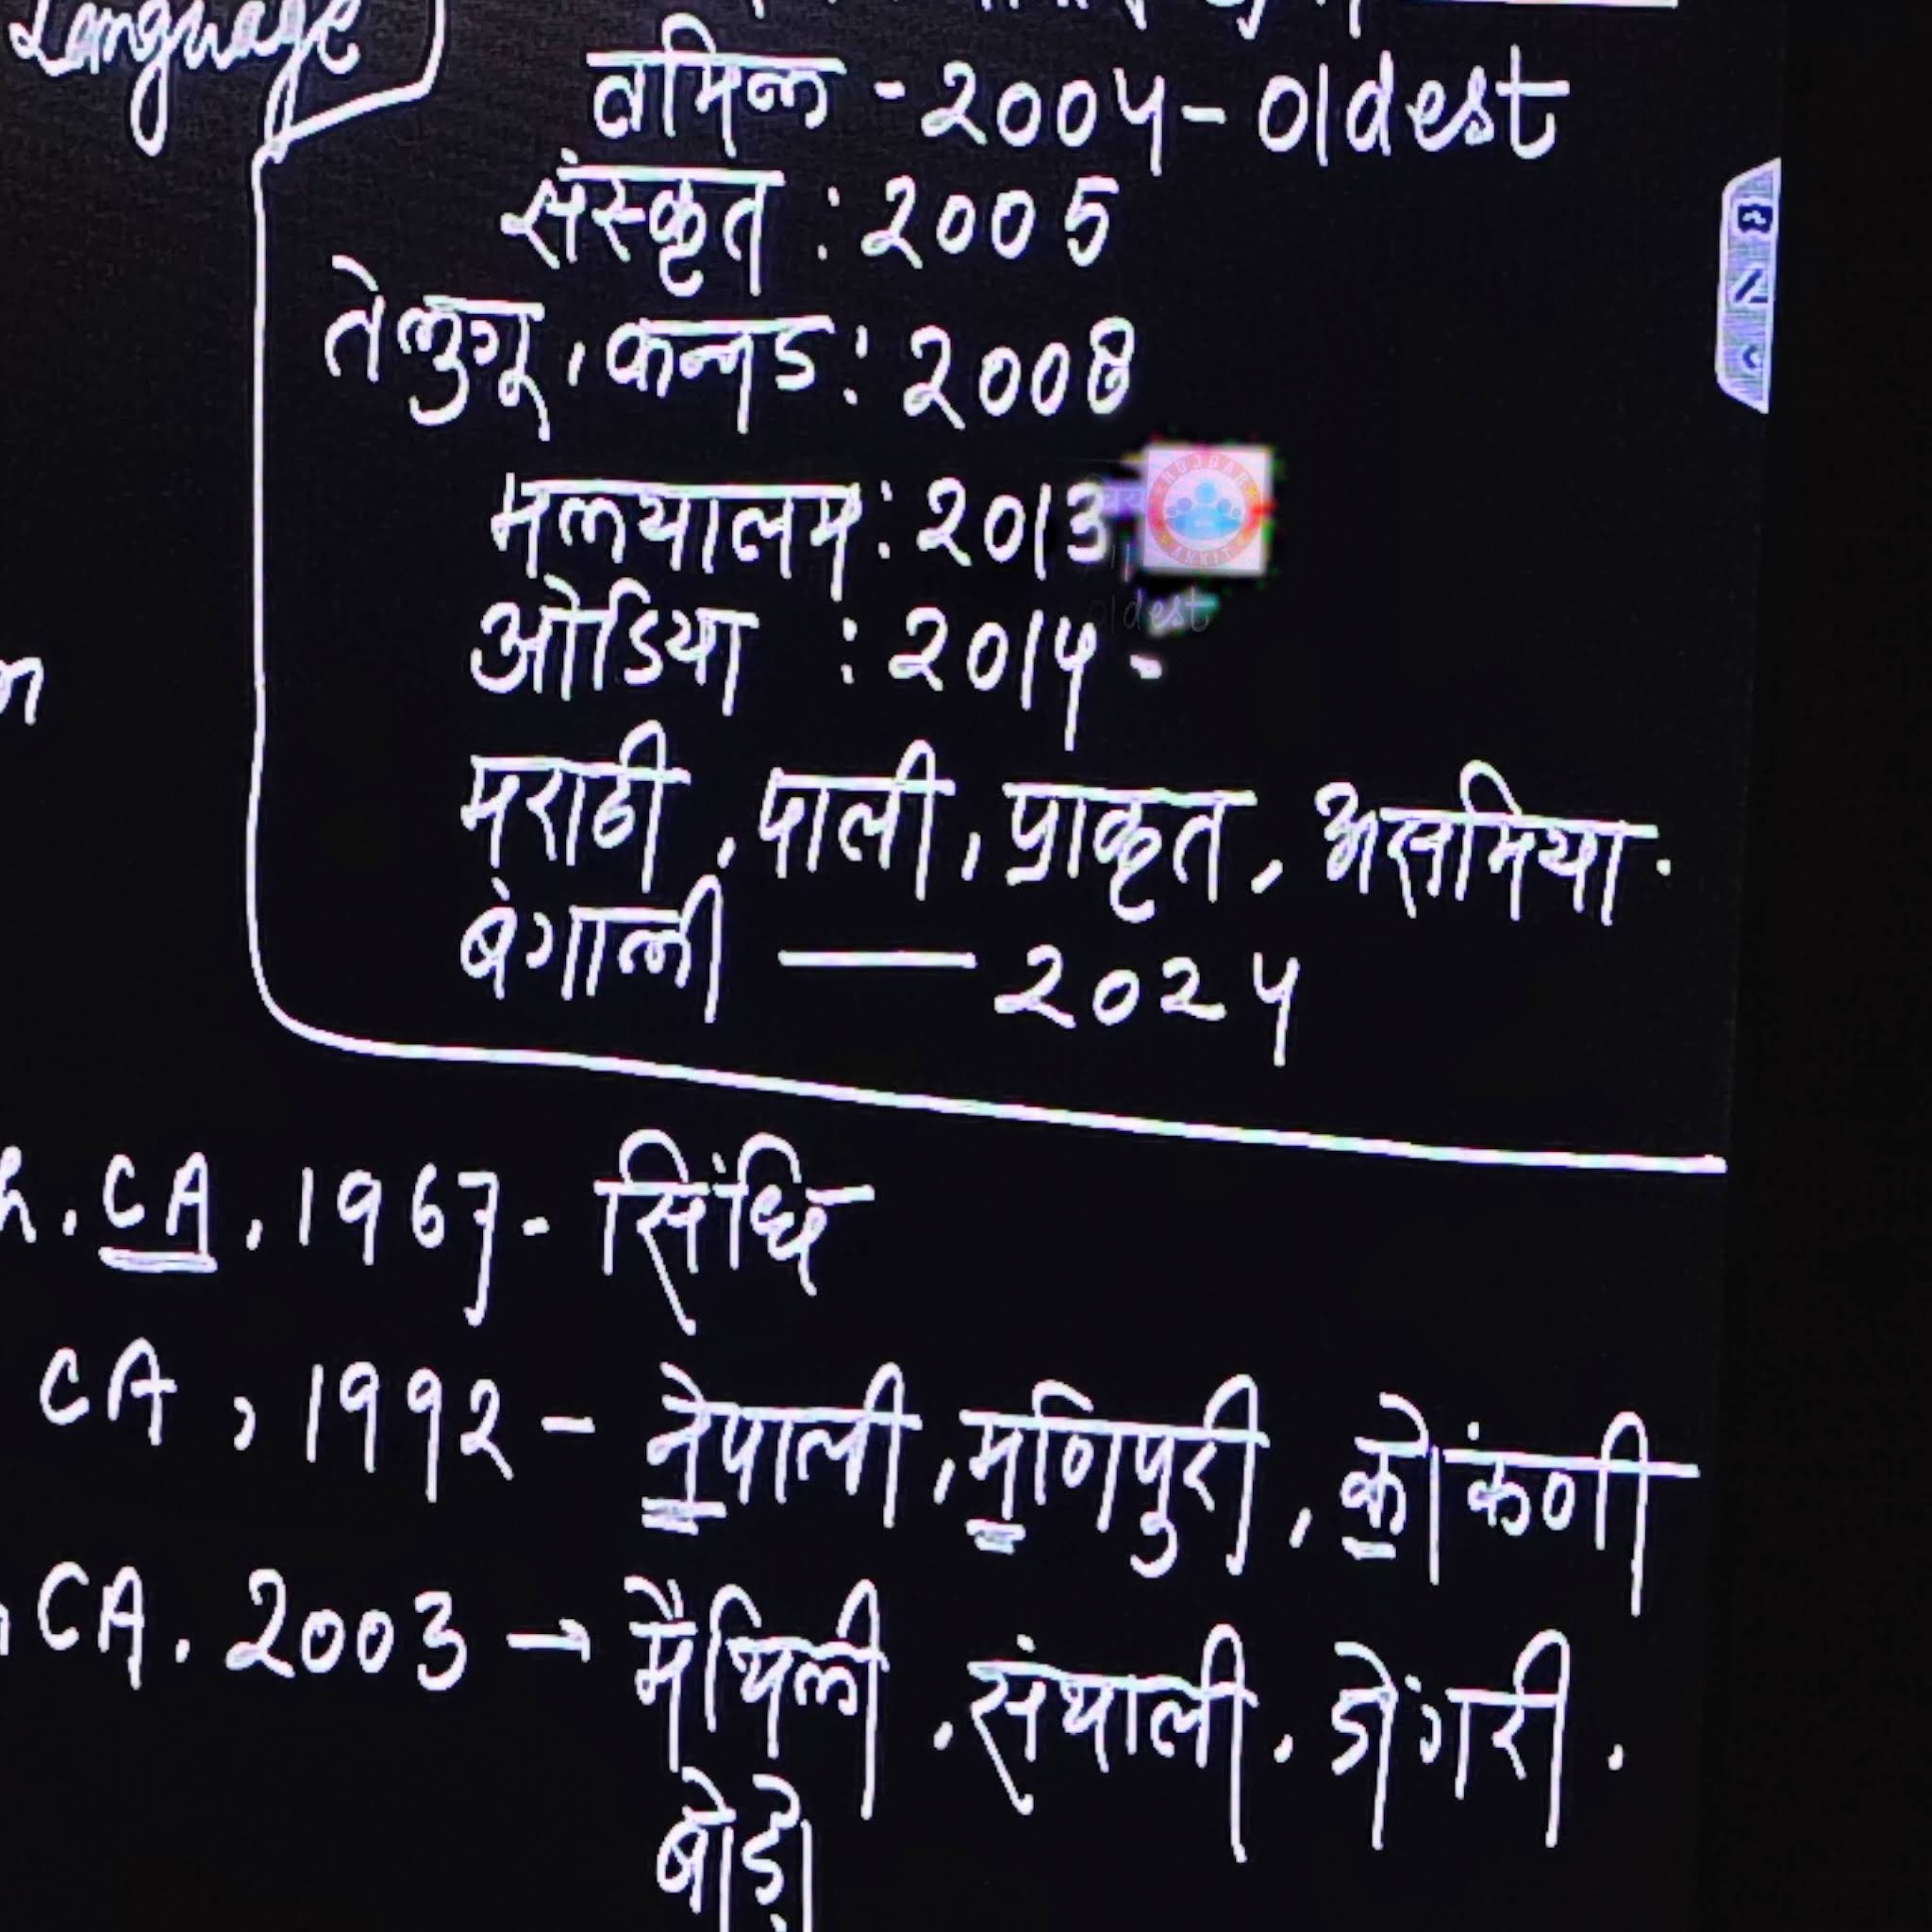 Language
तमिल - 2004 - Oldest
संस्कृत : 2005
तेलुगू, कन्नड : 2008
मलयालम : 2013
ओडिया : 2014 -
oldest
मराठी, पाली, प्राकृत, असमिया.
बंगाली — 2024
CA, 1967 - सिंधि
CA, 1992 - नेपाली, मणिपुरी, कोंकणी
CA. 2003 → मैथिली, संथाली, डोंगरी,
बोड़ो